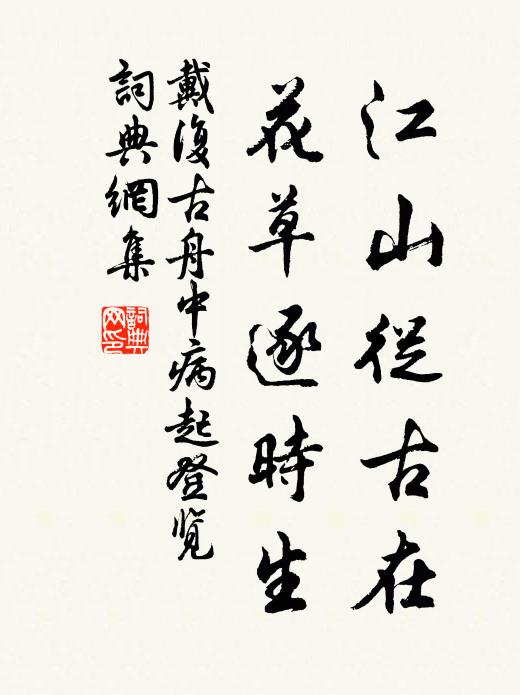 江山從古在
花草逐時生
戴復古舟中病起登览
詞典網集
詞典
网印